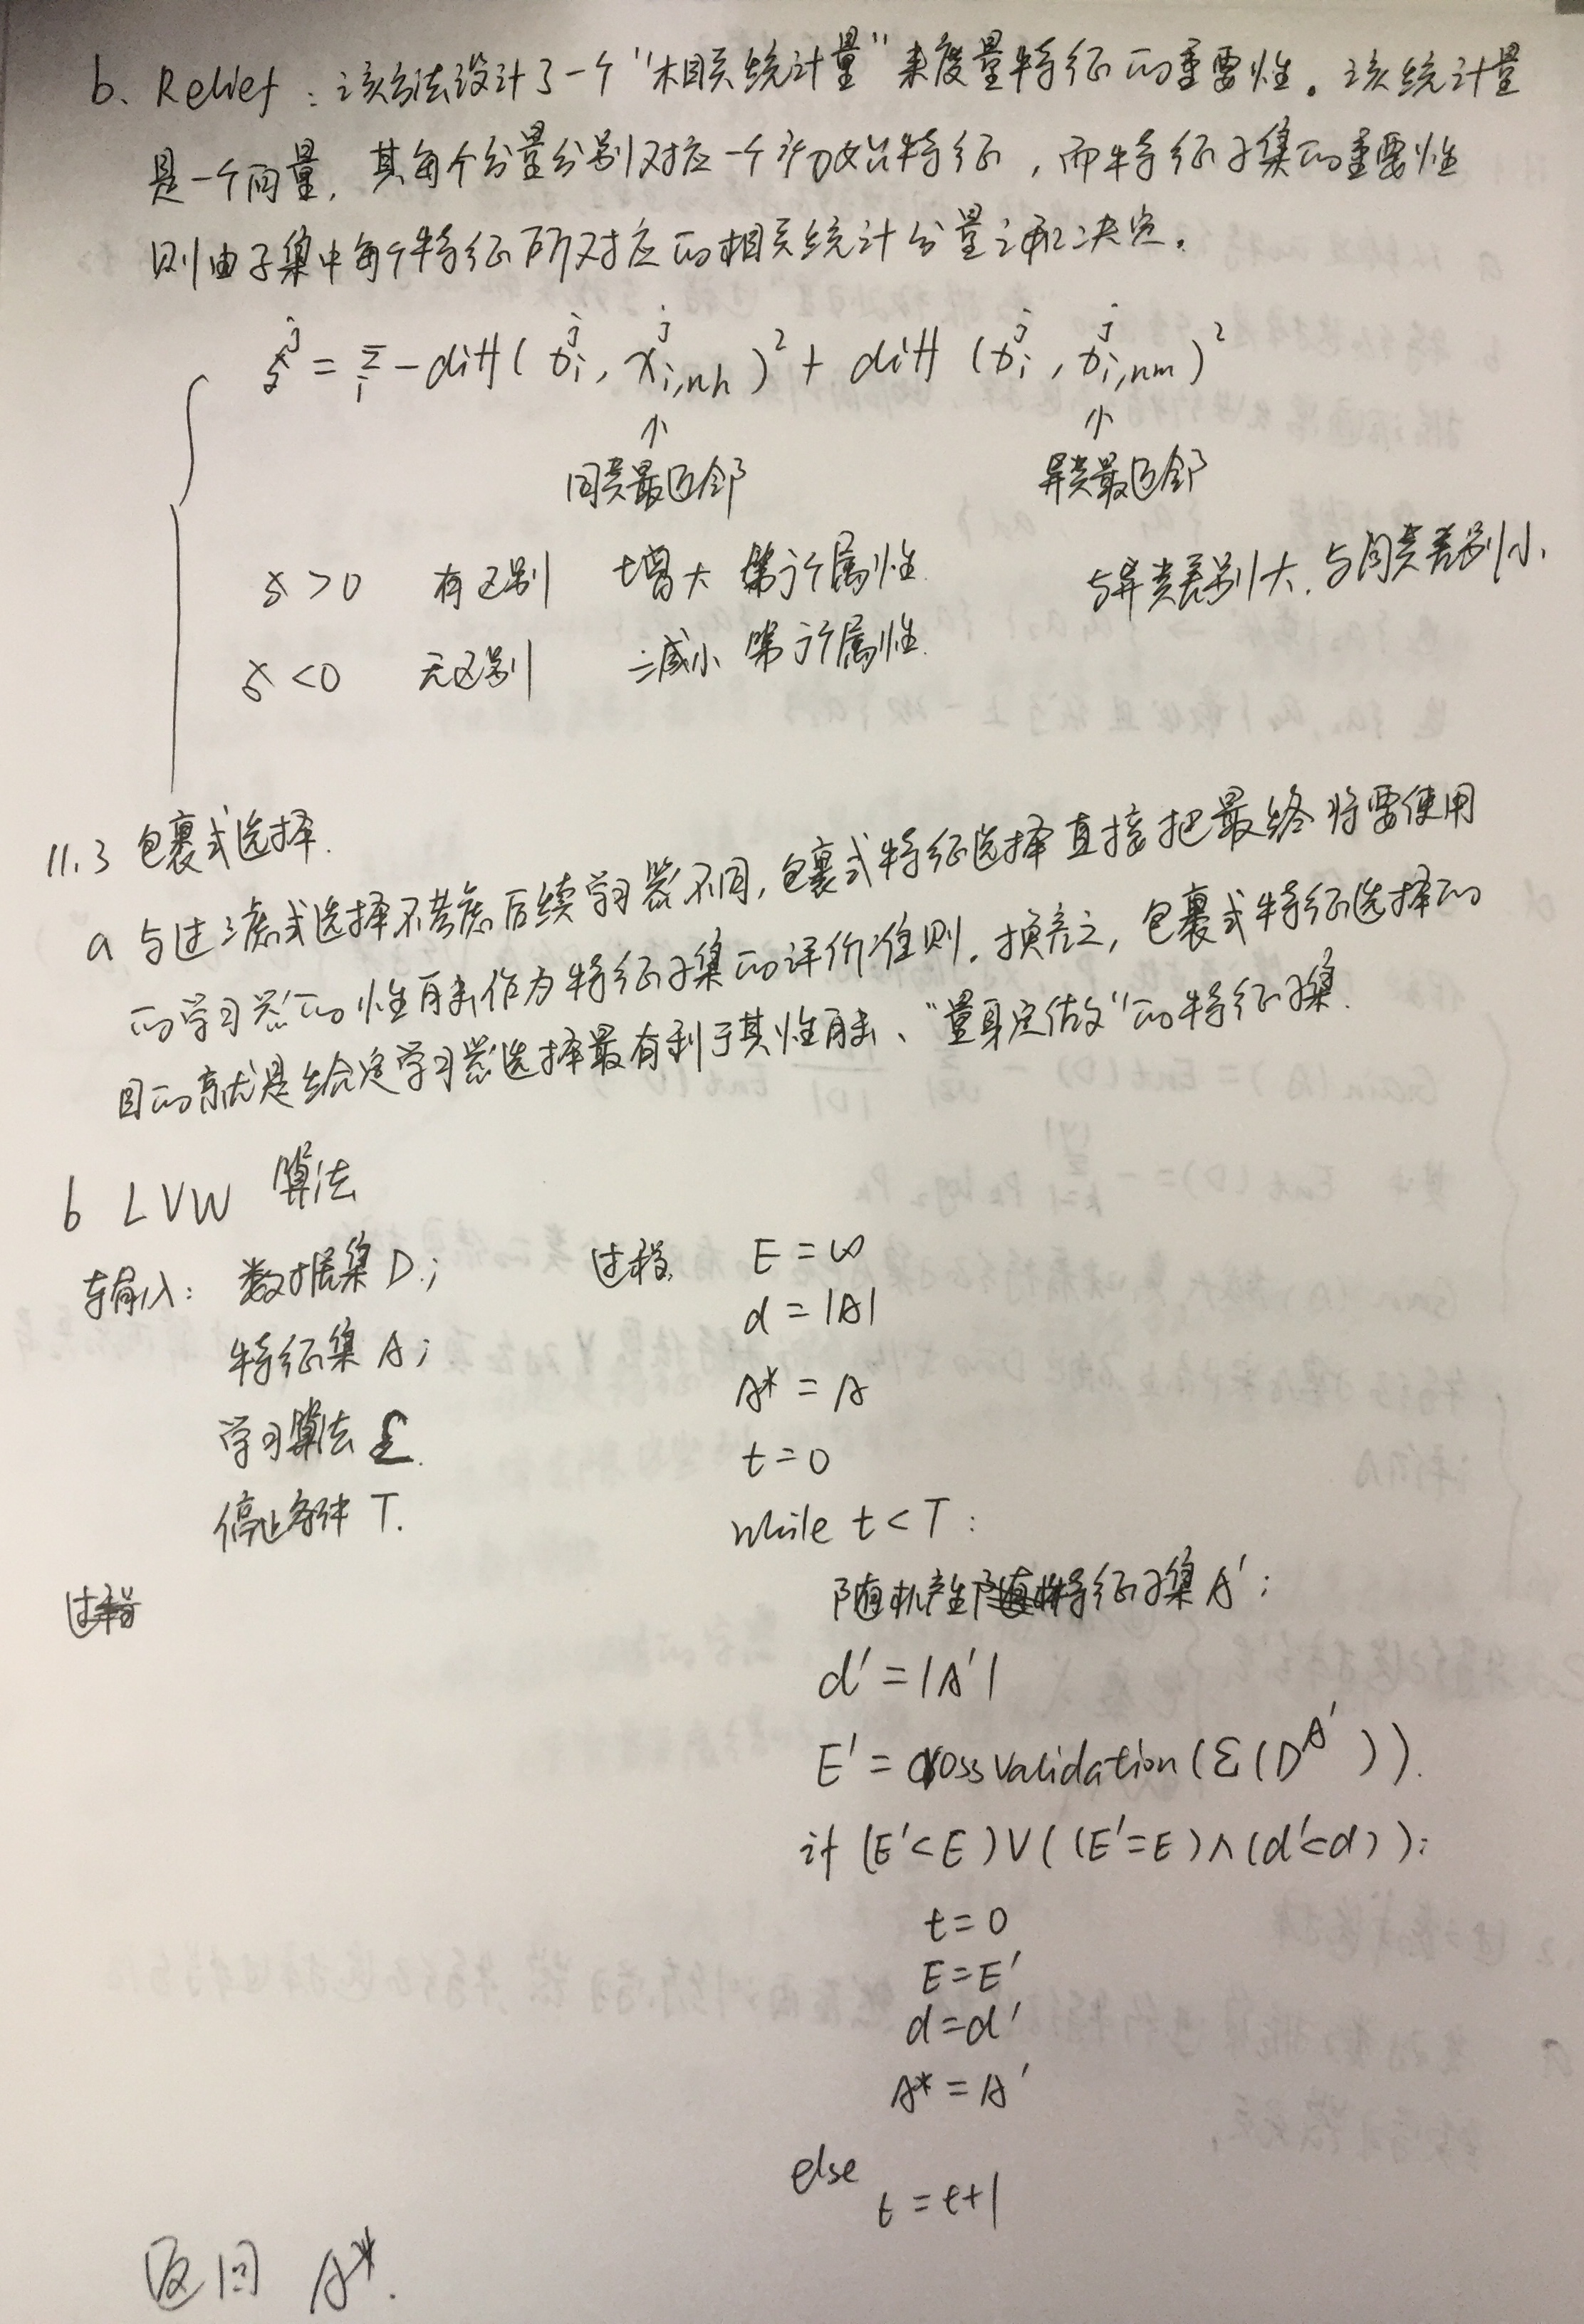 b、Relief：该方法设计了一个“相关统计量”来度量特征的重要性。该统计量
是一个向量，其每个分量分别对应一个初始特征，而特征子集的重要性
则由子集中每个特征所对应的相关统计分量之和决定。
δ^j = Σ_i -diff(x_i^j, x_{i,nh}^j)^2 + diff(x_i^j, x_{i,nm}^j)^2
↑ ↑
同类最近邻 异类最近邻
δ>0 有区别 增大 第j个属性. 与异类差别大，与同类差别小
δ<0 无区别 减小 第j个属性.
11.3 包裹式选择.
a 与过滤式选择不考虑后续学习器不同，包裹式特征选择直接把最终将要使用
的学习器的性能作为特征子集的评价准则。换言之，包裹式特征选择的
目的就是给定学习器选择最有利于其性能、“量身定做”的特征子集.
b LVW 算法
输入：数据集 D；
特征集 A；
学习算法 £.
停止条件 T.
过程
过程 E=∞
d=|A|
A*=A
t=0
while t<T：
随机产生特征子集 A'；
d'=|A'|
E'=crossvalidation(Σ(D^A')).
if (E'<E)∨((E'=E)∧(d'<d))：
t=0
E=E'
d=d'
A*=A'
else
t=t+1
返回 A*.